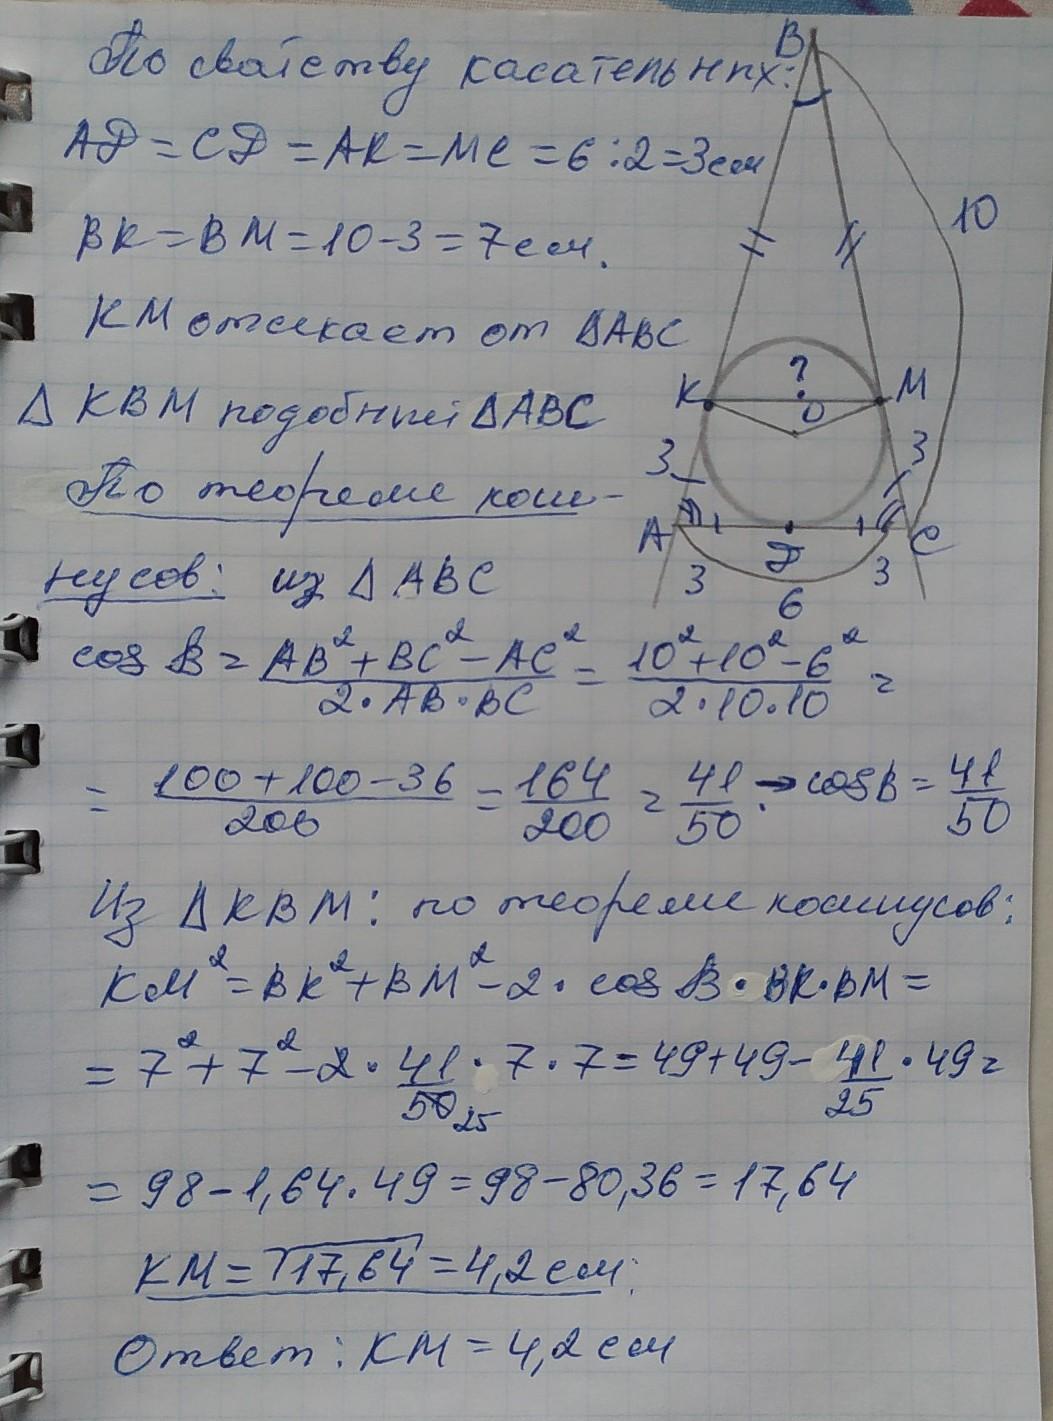 По свойству касательных:
AD = CD = AK = MC = 6:2 = 3 см
BK = BM = 10 - 3 = 7 см.
KM отсекает от ΔABC
Δ KBM подобный ΔABC
По теореме коси-
нусов: из Δ ABC
cos B = AB²+BC²-AC² / 2·AB·BC = 10²+10²-6² / 2·10·10 =
= 100+100-36 / 200 = 164/200 = 41/50. → cos B = 41/50
Из ΔKBM: по теореме косинусов:
KM² = BK²+BM²-2·cos B·BK·BM =
= 7²+7²-2·41/50 25·7·7 = 49+49-41/25·49 =
= 98-1,64·49 = 98-80,36 = 17,64
KM = √17,64 = 4,2 см.
Ответ: KM = 4,2 см
B
10
K
?
O
M
3
3
A
D
C
3
3
6